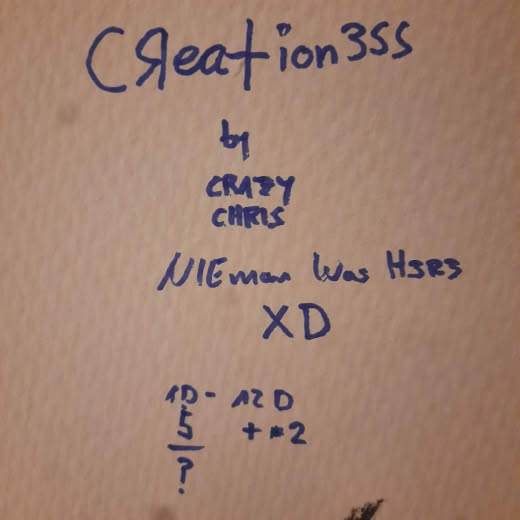 CЯeation3SS
by
CRAZY
CHRIS
NIEman Was H3R3
XD
1D - 12D
5 + * 2
?